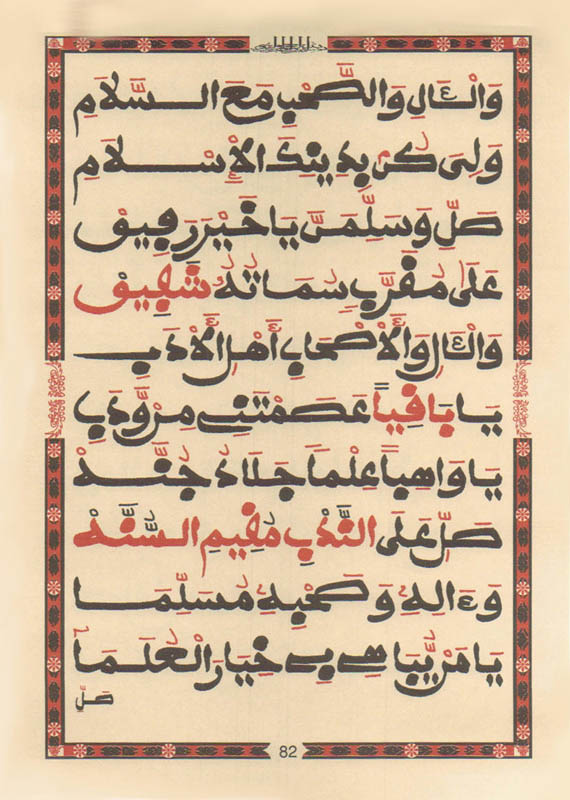 وَالْآلِ وَالصَّحْبِ مَعَ السَّلَامِ
وَلِى كُن بِدِينِكَ الْإِسْلَامِ
صَلِّ وَسَلِّمَنَّ يَا خَيْرَ رَفِيقْ
عَلَى مُقَرَّبٍ سِمَاتُهُ شَفِيقْ
وَالْآلِ وَالْأَصْحَابِ أَهْلِ الْأَدَبِ
يَا بَاقِياً عَصَمْتَنِي مِن
يَا وَاهِباً عِلْماً جَلَا دُجُنَّهْ
صَلِّ عَلَى النَّدْبِ مُقِيمِ السُّنَّهْ
وَءَالِهِ وَصَحْبِهِ مُسَلِّمَا
يَا مَن يُّبَاهِي بِي خِيَارَ الْعُلَمَا
صَلِّ
82